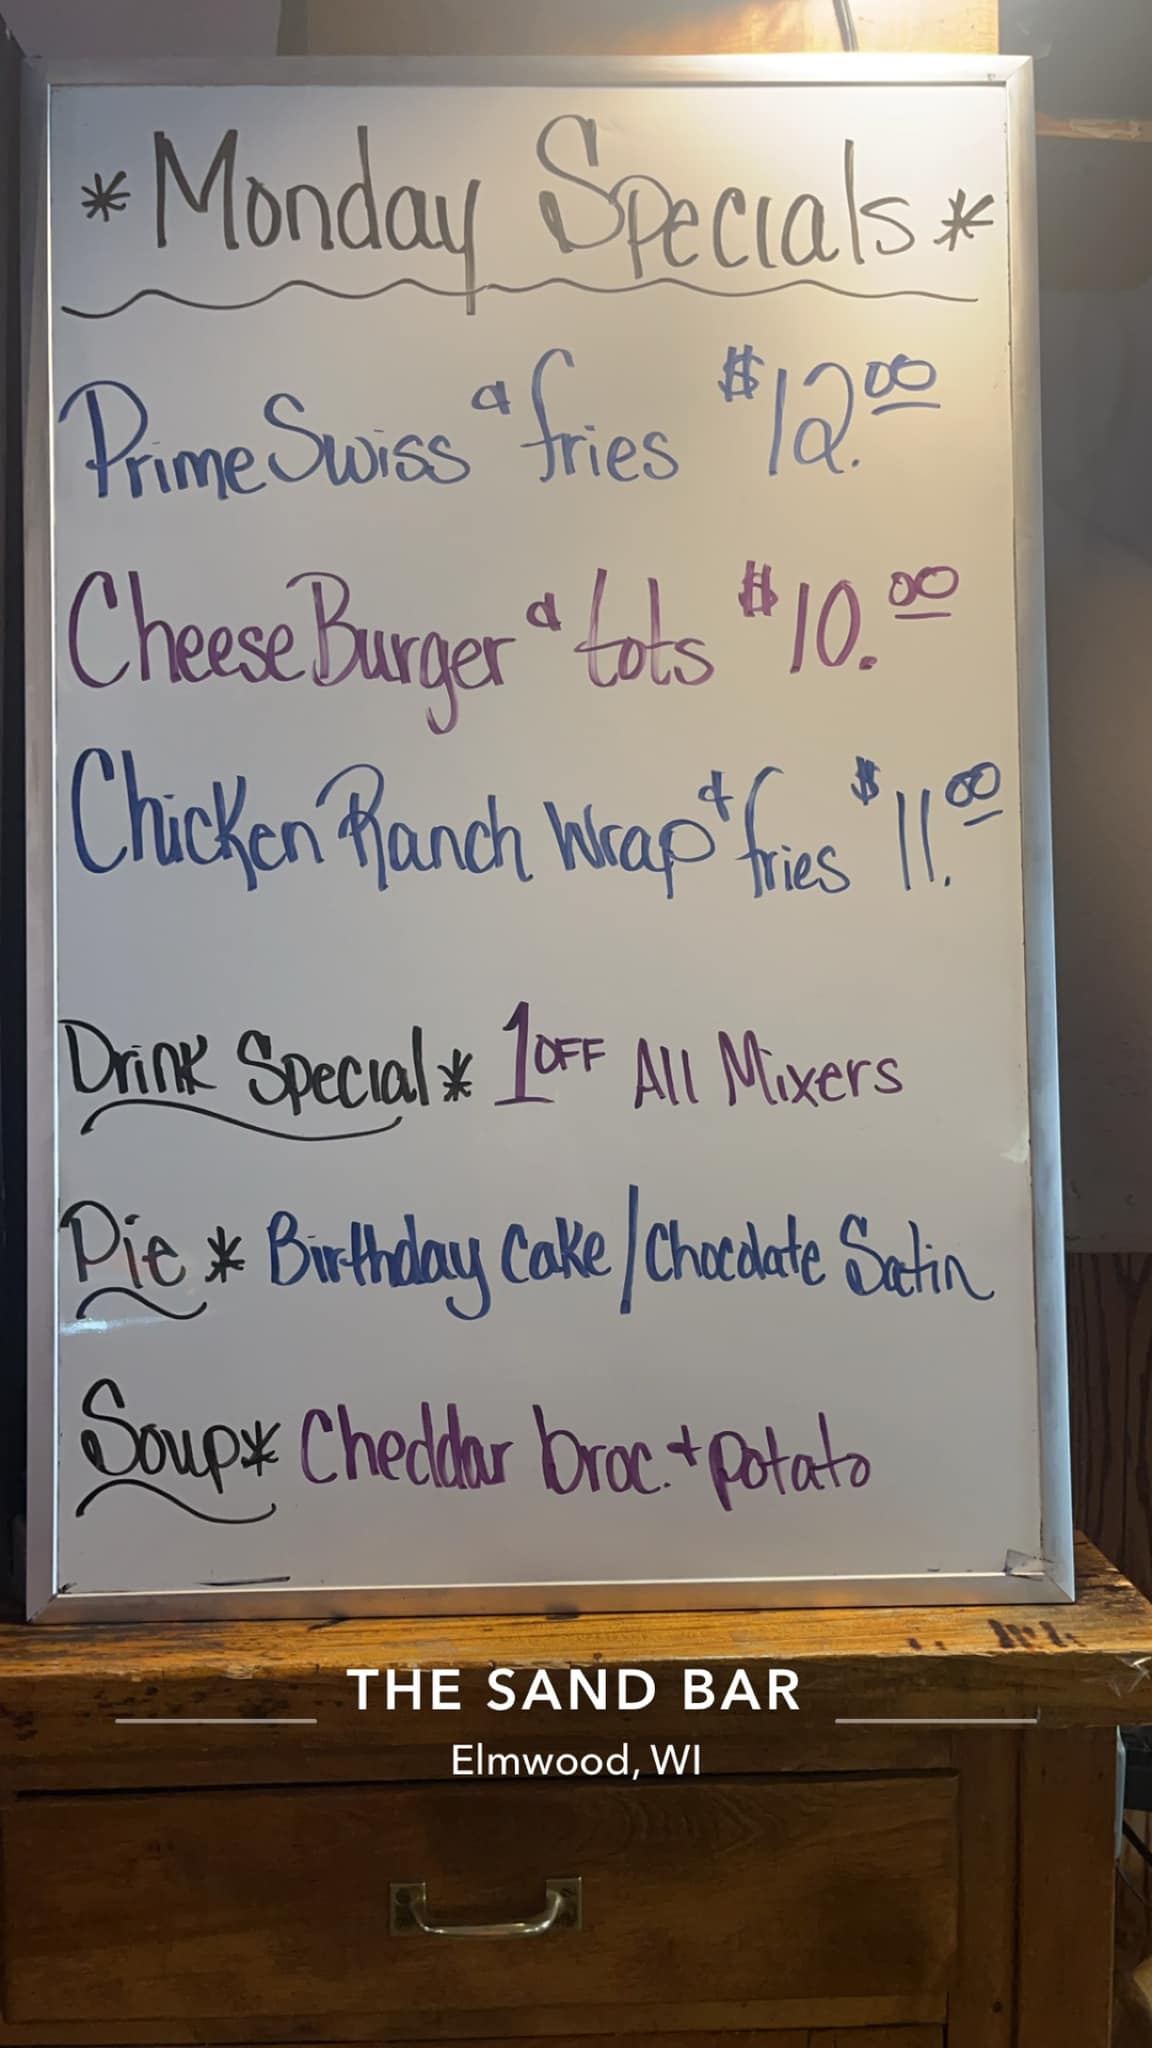 *Monday Specials*
Prime Swiss & fries $12.00
Cheese Burger & tots $10.00
Chicken Ranch Wrap & fries $11.00
Drink Special* 1 OFF All Mixers
Pie * Birthday Cake/Chocolate Satin
Soup* Cheddar broc. + potato
THE SAND BAR
Elmwood, WI